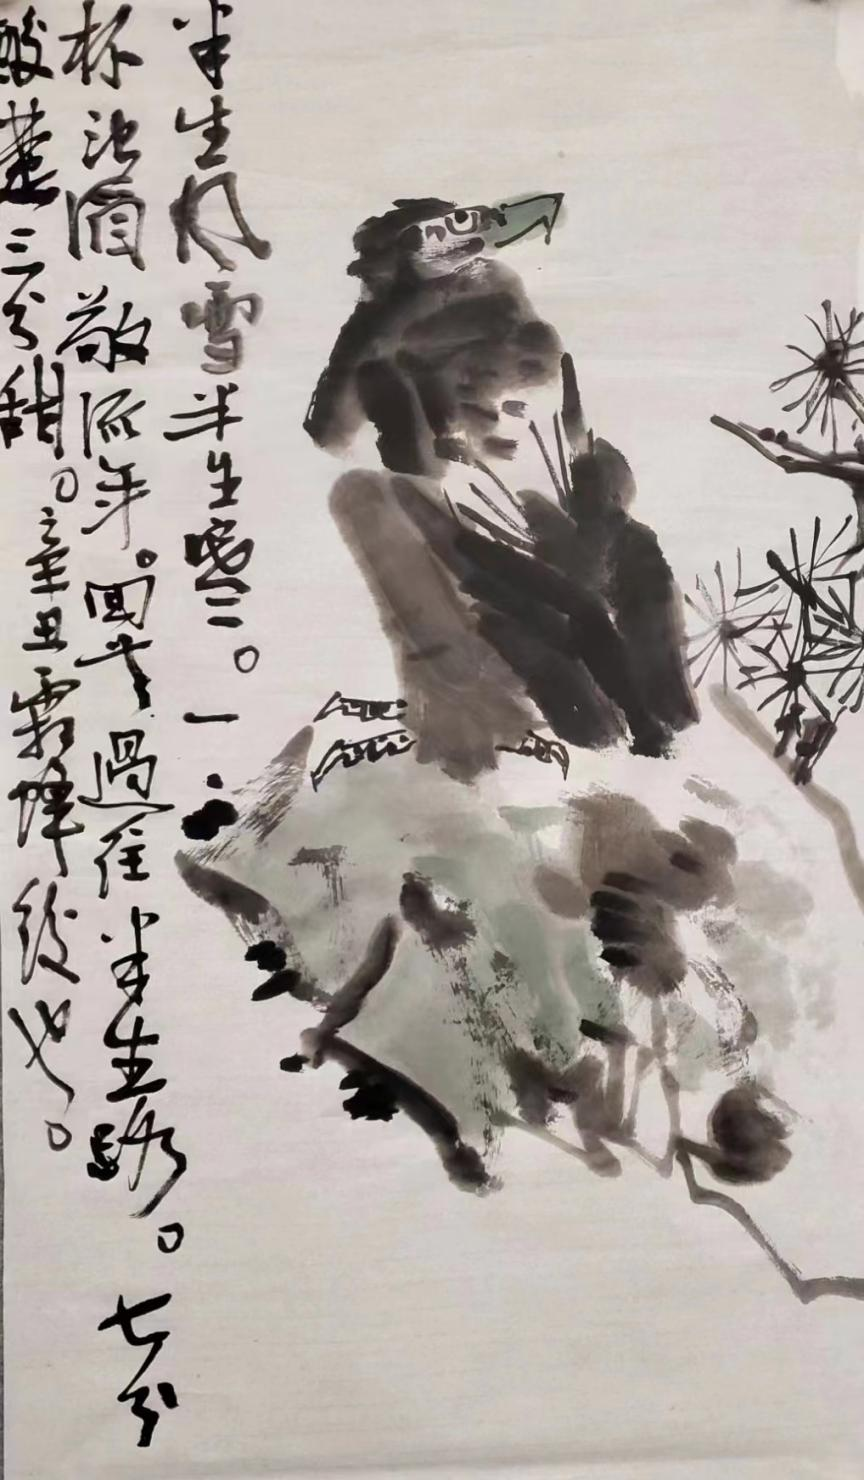 半生风雪半生寒。一
杯浊酒敬流年。回首過往半生路。七分
酸楚三分甜。辛丑霜降後也。